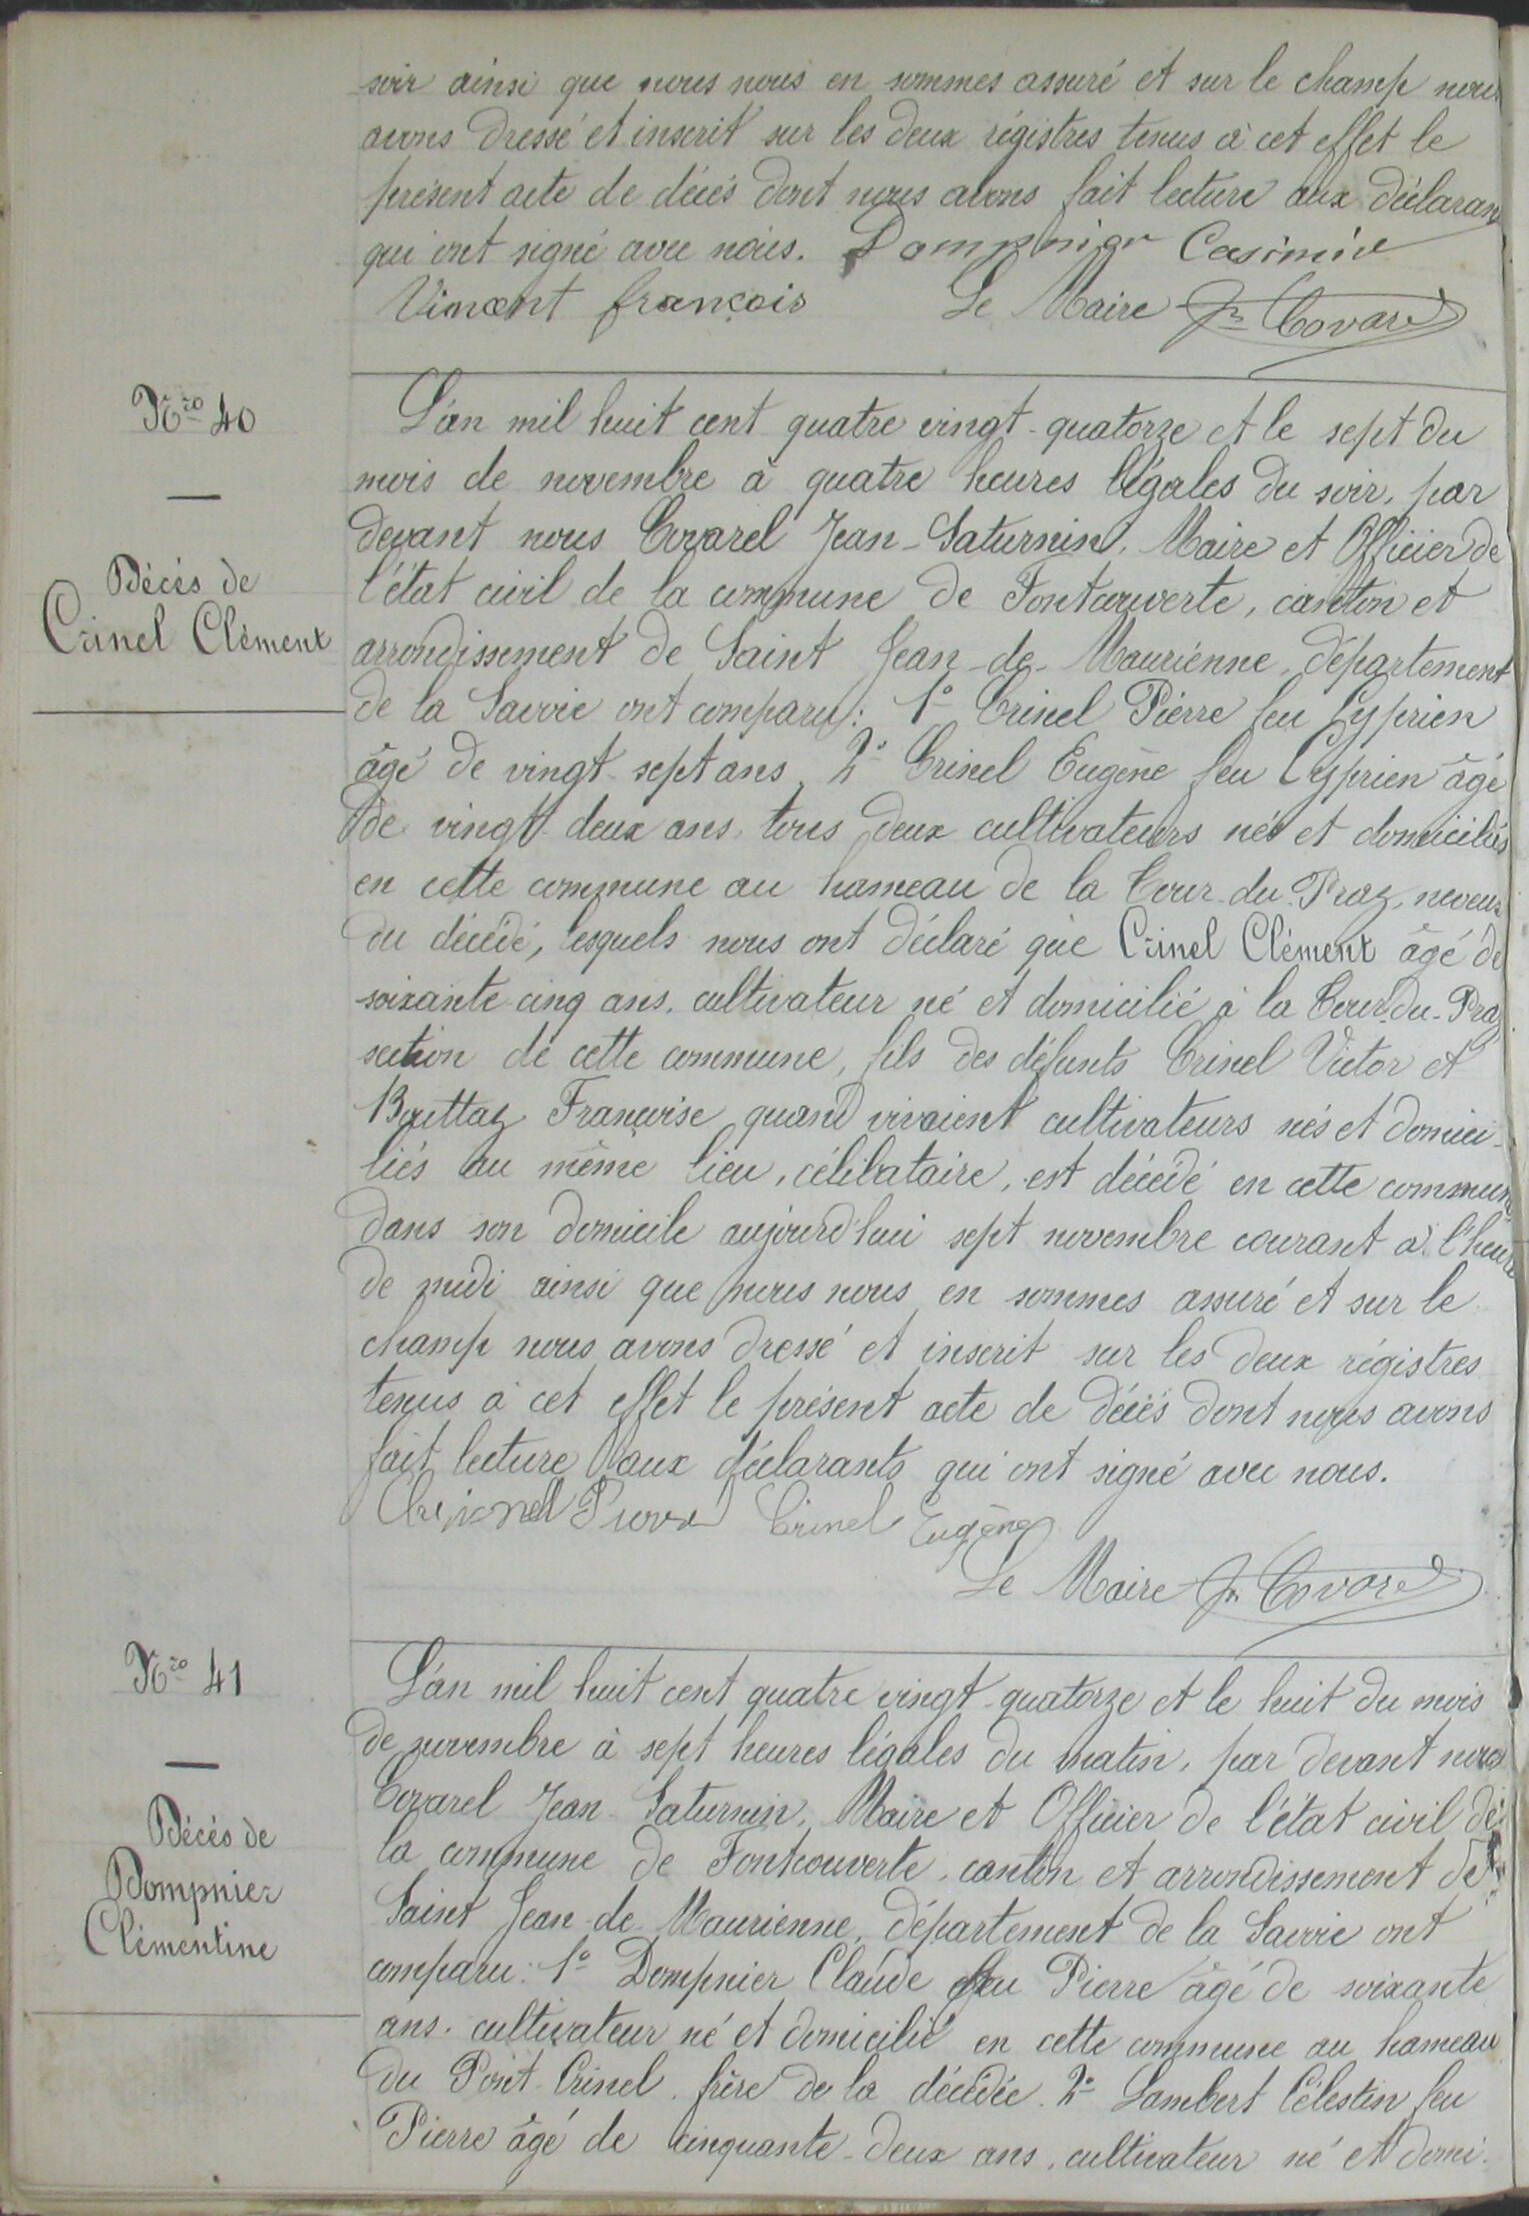 soir ainsi que nous nous en sommes assuré et sur le champ nous
avons dressé et inscrit sur les deux régistres tenus à cet effet le
présent acte de décès dont nous avons fait lecture aux déclaran
qui ont signé avec nous. Dompnier Casimir
Vincent françois Le Maire Jn Covarel
Nro 40
Décès de
Crinel Clément
L'an mil huit cent quatre vingt-quatorze et le sept du
mois de novembre à quatre heures légales du soir, par
devant nous Covarel Jean-Saturnin, Maire et Officier de
l'état civil de la commune de Fontcouverte, canton et
arrondissement de Saint Jean-de-Maurienne, département
de la Savoie ont comparu: 1º Crinel Pierre feu Cyprien
âgé de vingt-sept ans, 2º Crinel Eugène feu Cyprien âgé
de vingt-deux ans, tous deux cultivateurs nés et domiciliés
en cette commune au hameau de la Cour-du-Praz, neveux
du décédé, lesquels nous ont déclaré que Crinel Clément âgé de
soixante-cinq ans, cultivateur né et domicilié à la Cour-du-Praz
section de cette commune, fils des défunts Crinel Victor et
Bouttaz Françoise quand vivaient cultivateurs nés et domici-
liés au même lieu, célibataire, est décédé en cette commune
dans son domicile aujourd'hui sept novembre courant à l'heure
de midi ainsi que nous nous en sommes assuré et sur le
champ nous avons dressé et inscrit sur les deux régistres
tenus à cet effet le présent acte de décès dont nous avons
fait lecture aux déclarants qui ont signé avec nous.
Crinel Eugène
Le Maire Jn Covarel
Nro 41
Décès de
Dompnier
Clémentine
L'an mil huit cent quatre vingt-quatorze et le huit du mois
de novembre à sept heures légales du matin, par devant nous
Covarel Jean-Saturnin, Maire et Officier de l'état civil de
la commune de Fontcouverte, canton et arrondissement de
Saint Jean-de-Maurienne, département de la Savoie ont
comparu: 1º Dompnier Claude feu Pierre âgé de soixante
ans, cultivateur né et domicilié en cette commune au hameau
du Pont-Crinel, frère de la décédée. 2º Lambert Célestin feu
Pierre âgé de cinquante-deux ans, cultivateur né et domi-